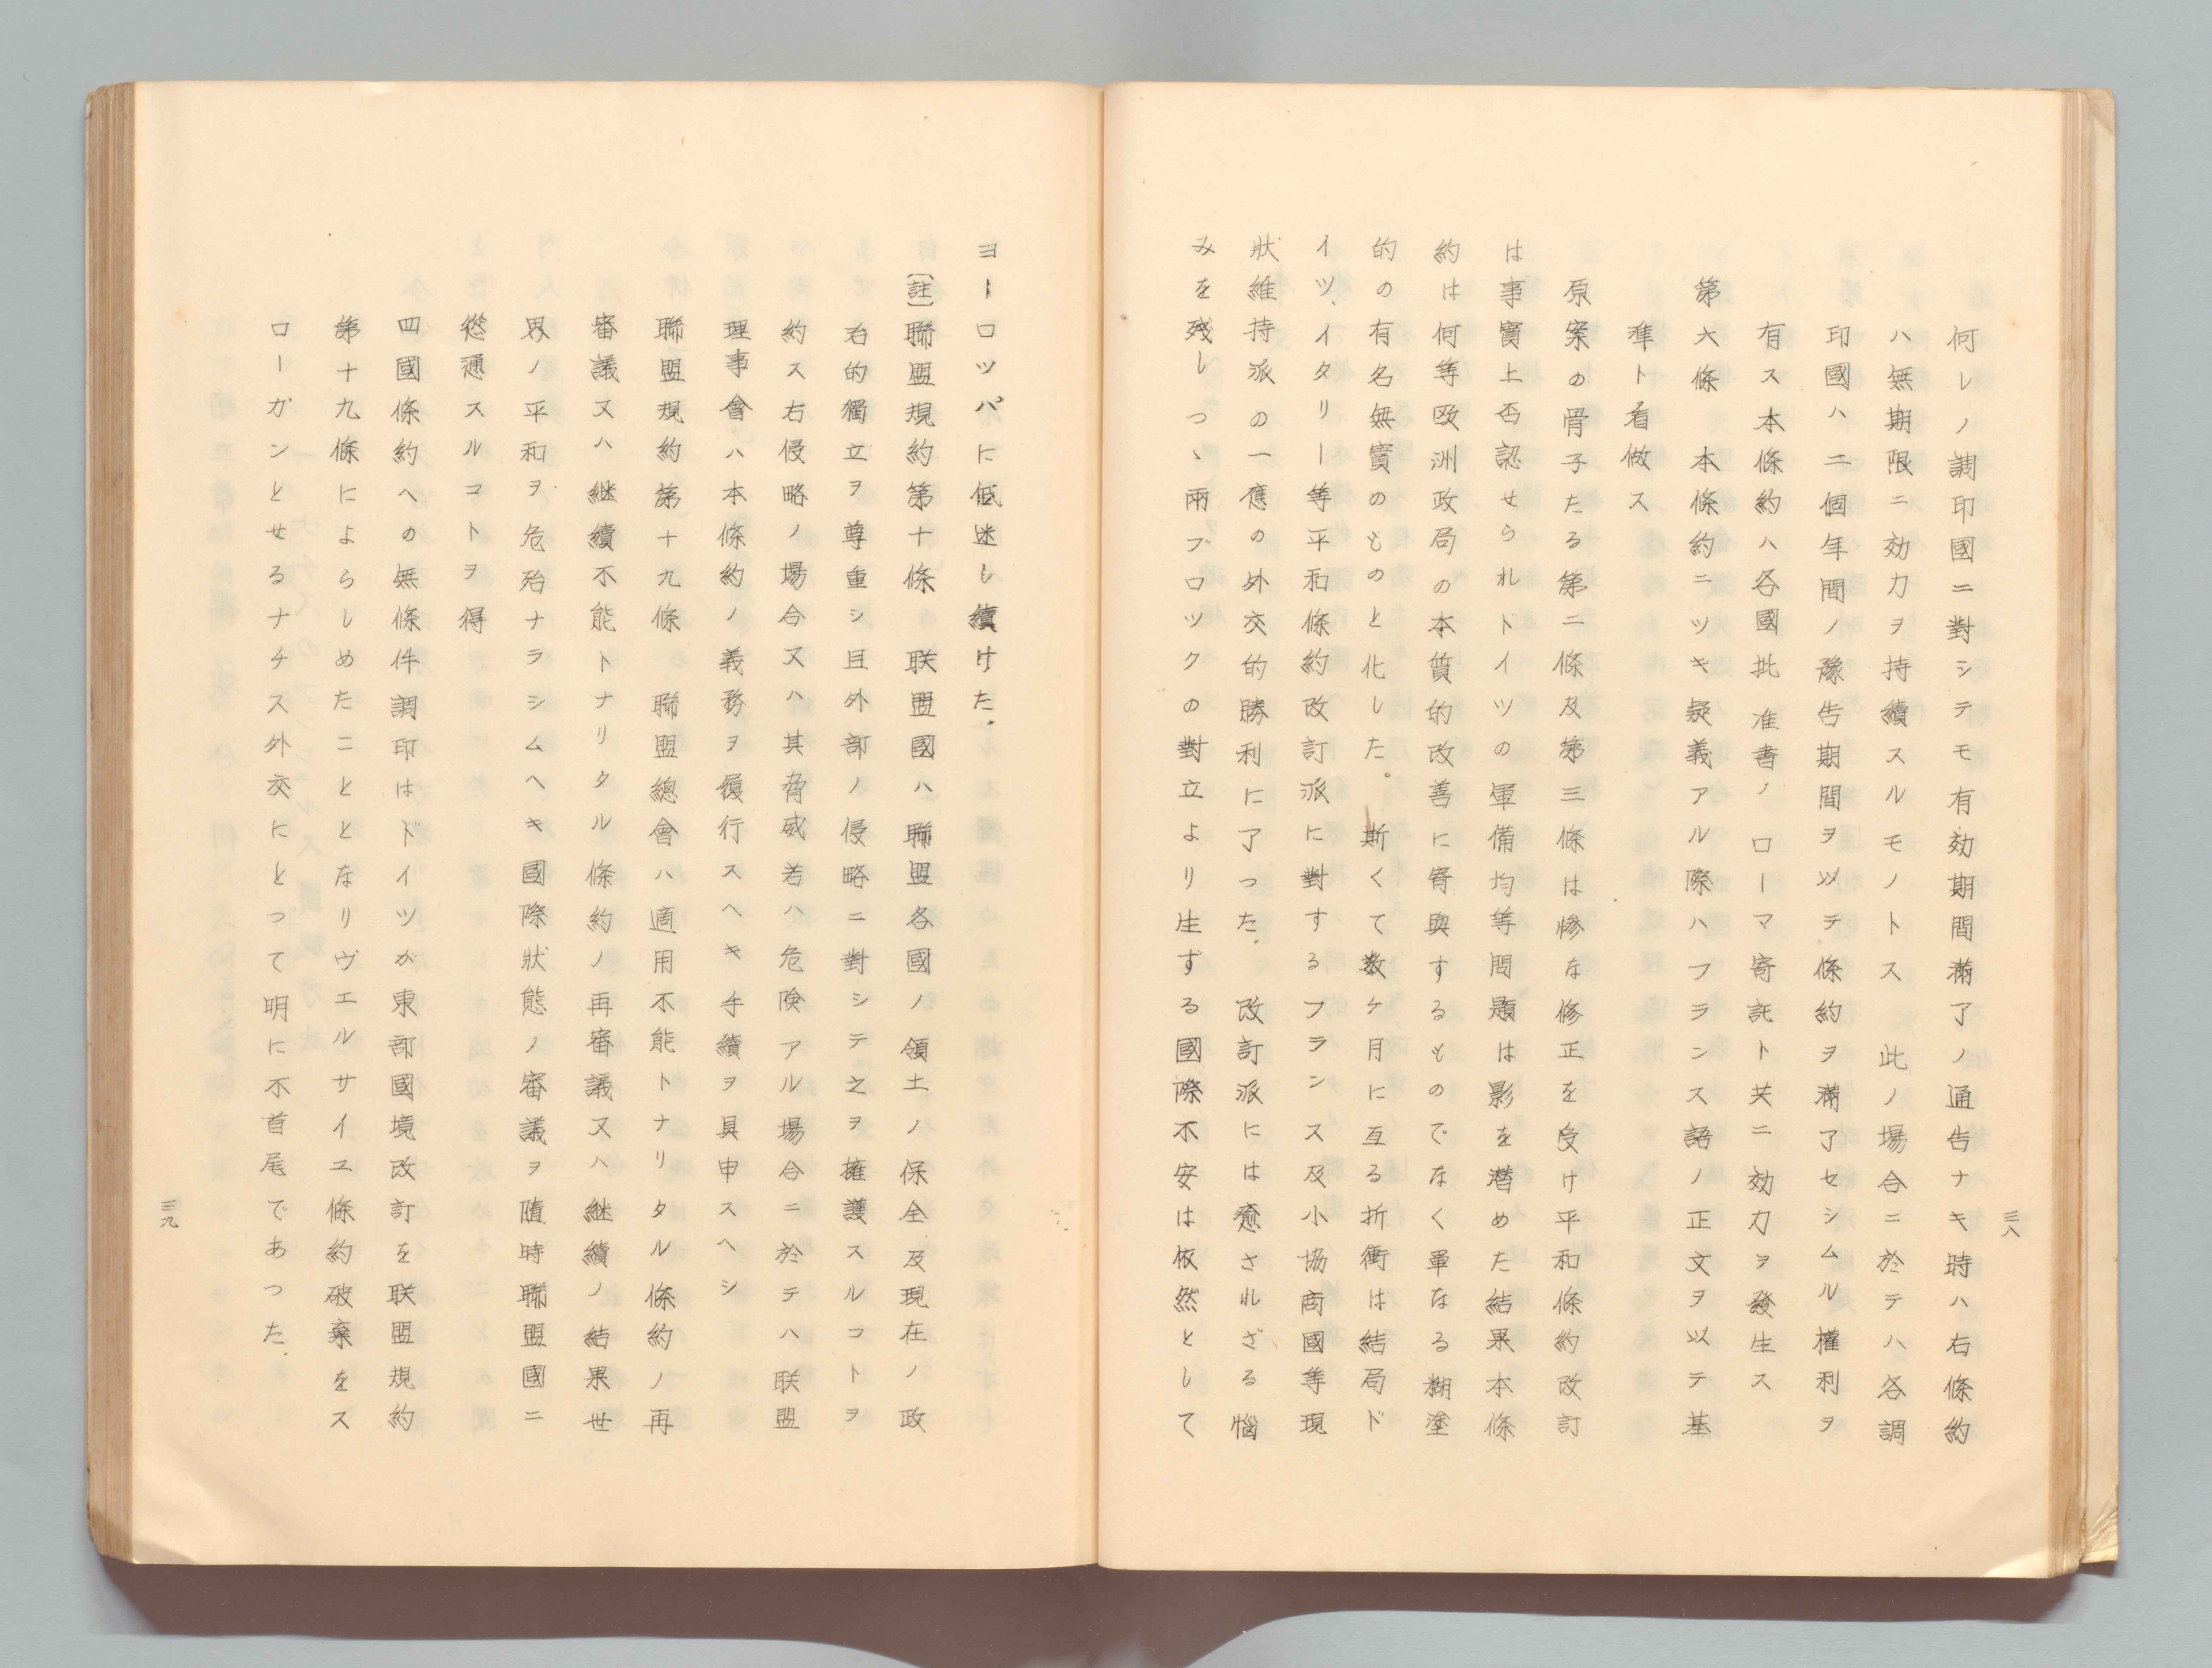 三八
何レノ調印國ニ對シテモ有効期間滿了ノ通告ナキ時ハ右條約
ハ無期限ニ効力ヲ持續スルモノトス　此ノ場合ニ於テハ各調
印國ハ二個年間ノ豫告期間ヲ以テ條約ヲ滿了セシムル權利ヲ
有ス本條約ハ各國批准書ノローマ寄託ト共ニ効力ヲ發生ス
第六條　本條約ニツキ疑義アル際ハフランス語ノ正文ヲ以テ基
準ト看做ス
原案の骨子たる第二條及第三條は慘な修正を受け平和條約改訂
は事實上否認せられドイツの軍備均等問題は影を潜めた結果本條
約は何等欧洲政局の本質的改善に寄與するものでなく單なる糊塗
的の有名無實のものと化した。斯くて数ケ月に亙る折衝は結局ド
イツ、イタリー等平和條約改訂派に對するフランス及小協商國等現
狀維持派の一應の外交的勝利に了つた、改訂派には癒されざる惱
みを残しつゝ兩ブロツクの對立より生ずる國際不安は依然として
ヨーロツパに低迷し續けた、
〔註〕聯盟規約第十條　联盟國ハ聯盟各國ノ領土ノ保全及現在ノ政
右的獨立ヲ尊重シ且外部ノ侵略ニ對シテ之ヲ擁護スルコトヲ
約ス右侵略ノ場合又ハ其脅威若ハ危険アル場合ニ於テハ联盟
理事會ハ本條約ノ義務ヲ履行スヘキ手續ヲ具申スヘシ
聯盟規約第十九條　聯盟總會ハ適用不能トナリタル條約ノ再
審議又ハ継續不能トナリタル條約ノ再審議又ハ継續ノ結果世
界ノ平和ヲ危殆ナラシムヘキ國際狀態ノ審議ヲ隨時聯盟國ニ
慫通スルコトヲ得
四國條約への無條件調印はドイツが東部國境改訂を联盟規約
第十九條によらしめたこととなりヴエルサイユ條約破棄をス
ローガンとせるナチス外交にとつて明に不首尾であつた、
三九